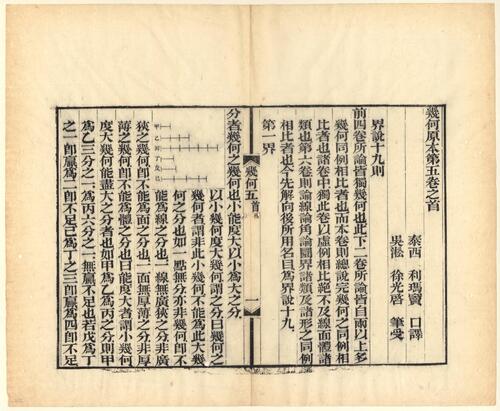 幾何原本第五卷之首
泰西 利瑪竇 口譯
吳淞 徐光啓 筆受
界說十九則
前四卷所論皆獨幾何也此下二卷所論皆自兩以上多
幾何同例相比者也而本卷則總說完幾何之同例相
比者也諸卷中獨此卷以虛例相比絕不及線面體諸
類也第六卷則論線論角論圜界諸類及諸形之同例
相比者也今先解向後所用名目爲界說十九
第一界
幾何五 首 一
分者幾何之幾何也小能度大以小爲大之分
以小幾何度大幾何謂之分曰幾何之
幾何者謂非此小幾何不能爲此大幾
何之分也如一點無分亦非幾何卽不
能爲線之分也一線無廣狹之分非廣
甲乙丙丁戊己
狹之幾何卽不能爲面之分也一面無厚薄之分非厚
薄之幾何卽不能爲體之分也曰能度大者謂小幾何
度大幾何能盡大之分者也如甲爲乙爲丙之分則甲
爲乙三分之一爲丙六分之一無贏不足也若戊爲丁
之一卽贏爲二卽不足己爲丁之三卽贏爲四卽不足